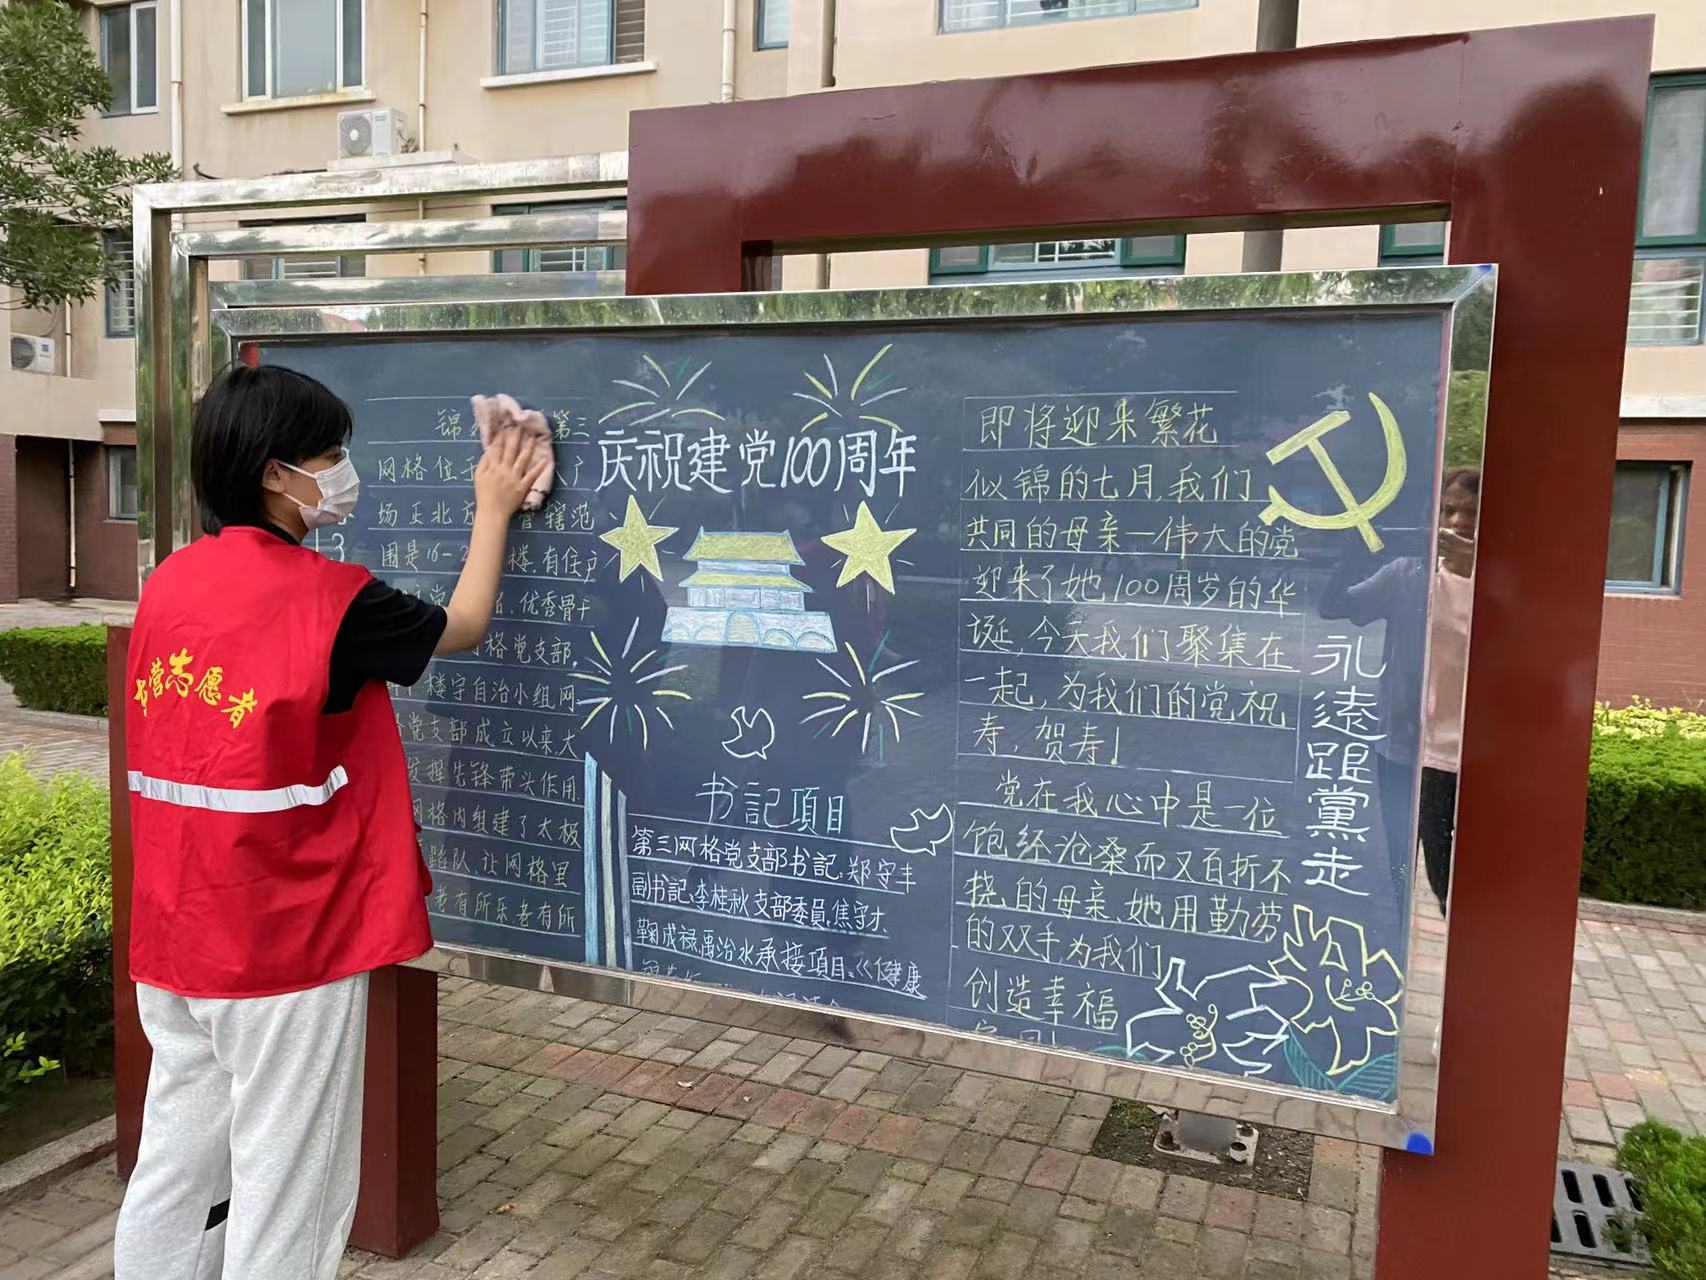 志愿者
13
锦 第三
网格位于 广
场正北方 管辖范
围是16-2 楼,有住户
党 名,优秀骨干
格党支部,
楼宇自治小组网
党支部成立以来,大
发挥先锋带头作用
网格内组建了太极
队,让网格里
老有所乐老有所
庆祝建党100周年
书記項目
第三网格党支部书記:郑守丰
副书記:李桂秋支部委員:焦守才
鞠成禄禹治水承接項目:《健康
即将迎来繁花
似锦的七月,我们
共同的母亲—伟大的党
迎来了她100周岁的华
诞,今天我们聚集在
一起,为我们的党祝
寿,贺寿!
党在我心中是一位
饱经沧桑而又百折不
挠的母亲、她用勤劳
的双手,为我们
创造幸福
永遠跟黨走